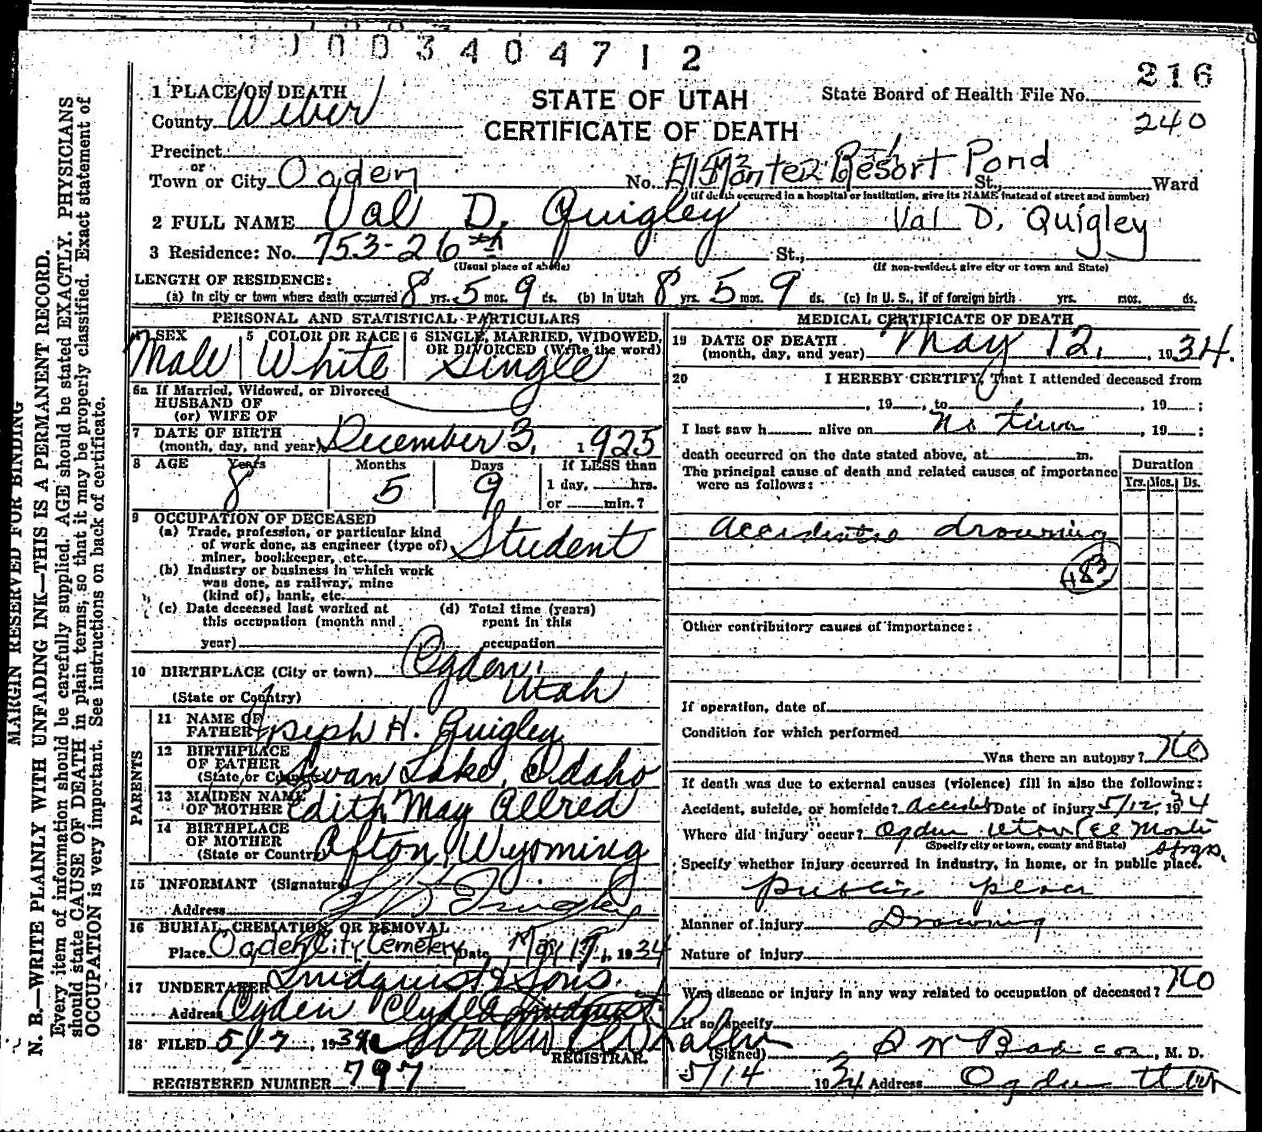 1003404712
216
1 PLACE OF DEATH
County Weber
STATE OF UTAH
CERTIFICATE OF DEATH
State Board of Health File No.
240
Precinct
or
Town or City Ogden
No. El Monte Resort Pond St., Ward
(If death occurred in a hospital or institution, give its NAME instead of street and number)
2 FULL NAME Val D. Quigley
Val D. Quigley
3 Residence: No. 753-26th St.,
(Usual place of abode)
(If non-resident give city or town and State)
LENGTH OF RESIDENCE:
(a) In city or town where death occurred 8 yrs. 5 mos. 9 ds. (b) In Utah 8 yrs. 5 mos. 9 ds. (c) In U. S., if of foreign birth. yrs. mos. ds.
PERSONAL AND STATISTICAL PARTICULARS
4 SEX
Male
5 COLOR OR RACE
White
6 SINGLE, MARRIED, WIDOWED,
OR DIVORCED (Write the word)
Single
6a If Married, Widowed, or Divorced
HUSBAND OF
(or) WIFE OF
7 DATE OF BIRTH
(month, day, and year) December 3, 1925
8 AGE Years Months Days If LESS than
8 5 9 1 day, hrs.
or min.?
9 OCCUPATION OF DECEASED
(a) Trade, profession, or particular kind
of work done, as engineer (type of)
miner, bookkeeper, etc. Student
(b) Industry or business in which work
was done, as railway, mine
(kind of), bank, etc.
(c) Date deceased last worked at
this occupation (month and
year)
(d) Total time (years)
spent in this
occupation
10 BIRTHPLACE (City or town) Ogden,
(State or Country) Utah
PARENTS
11 NAME OF
FATHER Joseph H. Quigley
12 BIRTHPLACE
OF FATHER
(State or Country) Swan Lake, Idaho
13 MAIDEN NAME
OF MOTHER Edith May Allred
14 BIRTHPLACE
OF MOTHER
(State or Country) Afton, Wyoming
15 INFORMANT (Signature)
Address
16 BURIAL, CREMATION, OR REMOVAL
Place Ogden City Cemetery Date May 1934
17 UNDERTAKER Lindquist & Sons.
Address Ogden Clyde Lindquist
18 FILED 5/7, 1934
REGISTRAR.
REGISTERED NUMBER 797
MEDICAL CERTIFICATE OF DEATH
19 DATE OF DEATH
(month, day, and year) May 12, 1934.
20 I HEREBY CERTIFY, That I attended deceased from
, 19 , to , 19 ;
I last saw h alive on No time , 19 ;
death occurred on the date stated above, at m.
The principal cause of death and related causes of importance
were as follows:
Duration
Yrs. Mos. Ds.
accidental drowning
183
Other contributory causes of importance:
If operation, date of
Condition for which performed
Was there an autopsy? No
If death was due to external causes (violence) fill in also the following:
Accident, suicide, or homicide? accident Date of injury 5/12, 1934
Where did injury occur? Ogden Utah (El Monte
(Specify city or town, county and State) Spgs.
Specify whether injury occurred in industry, in home, or in public place.
public place
Manner of injury Drowning
Nature of injury
Was disease or injury in any way related to occupation of deceased? No
If so, specify
(Signed) , M. D.
5/14 1934 Address Ogden Utah
MARGIN RESERVED FOR BINDING
N. B.—WRITE PLAINLY WITH UNFADING INK—THIS IS A PERMANENT RECORD.
Every item of information should be carefully supplied. AGE should be stated EXACTLY. PHYSICIANS
should state CAUSE OF DEATH in plain terms, so that it may be properly classified. Exact statement of
OCCUPATION is very important. See instructions on back of certificate.